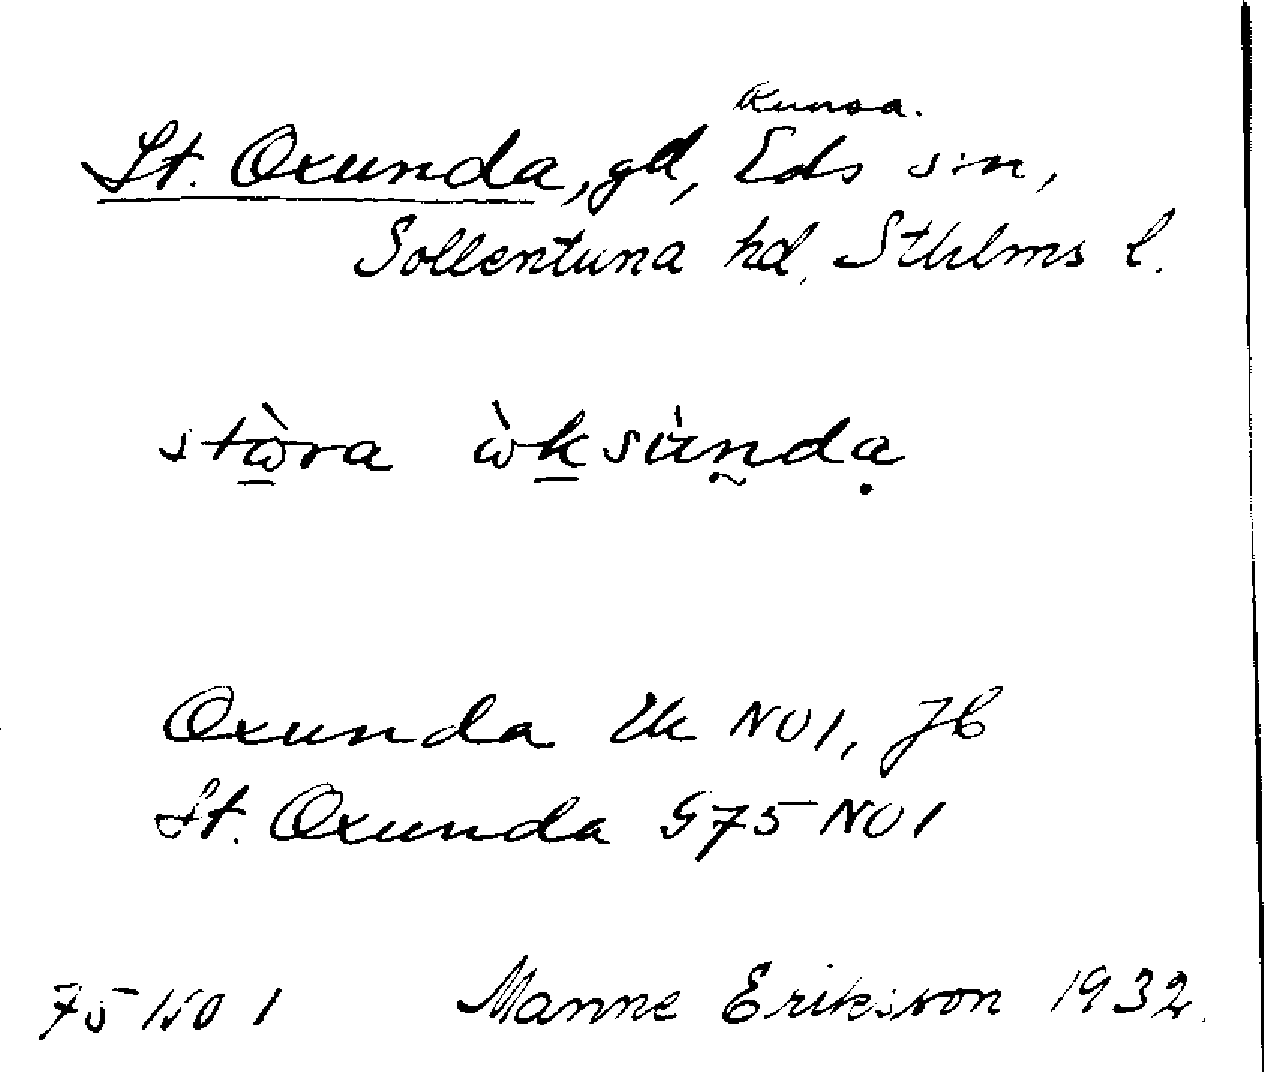 Runsa.
St. Oxunda, gd, Eds s:n,
Sollentuna hd, Sthlms l.
stὼra ὼksùnda
Oxunda Ek NO1, JB
St. Oxunda G75 NO1
75 NO 1 Manne Eriksson 1932.